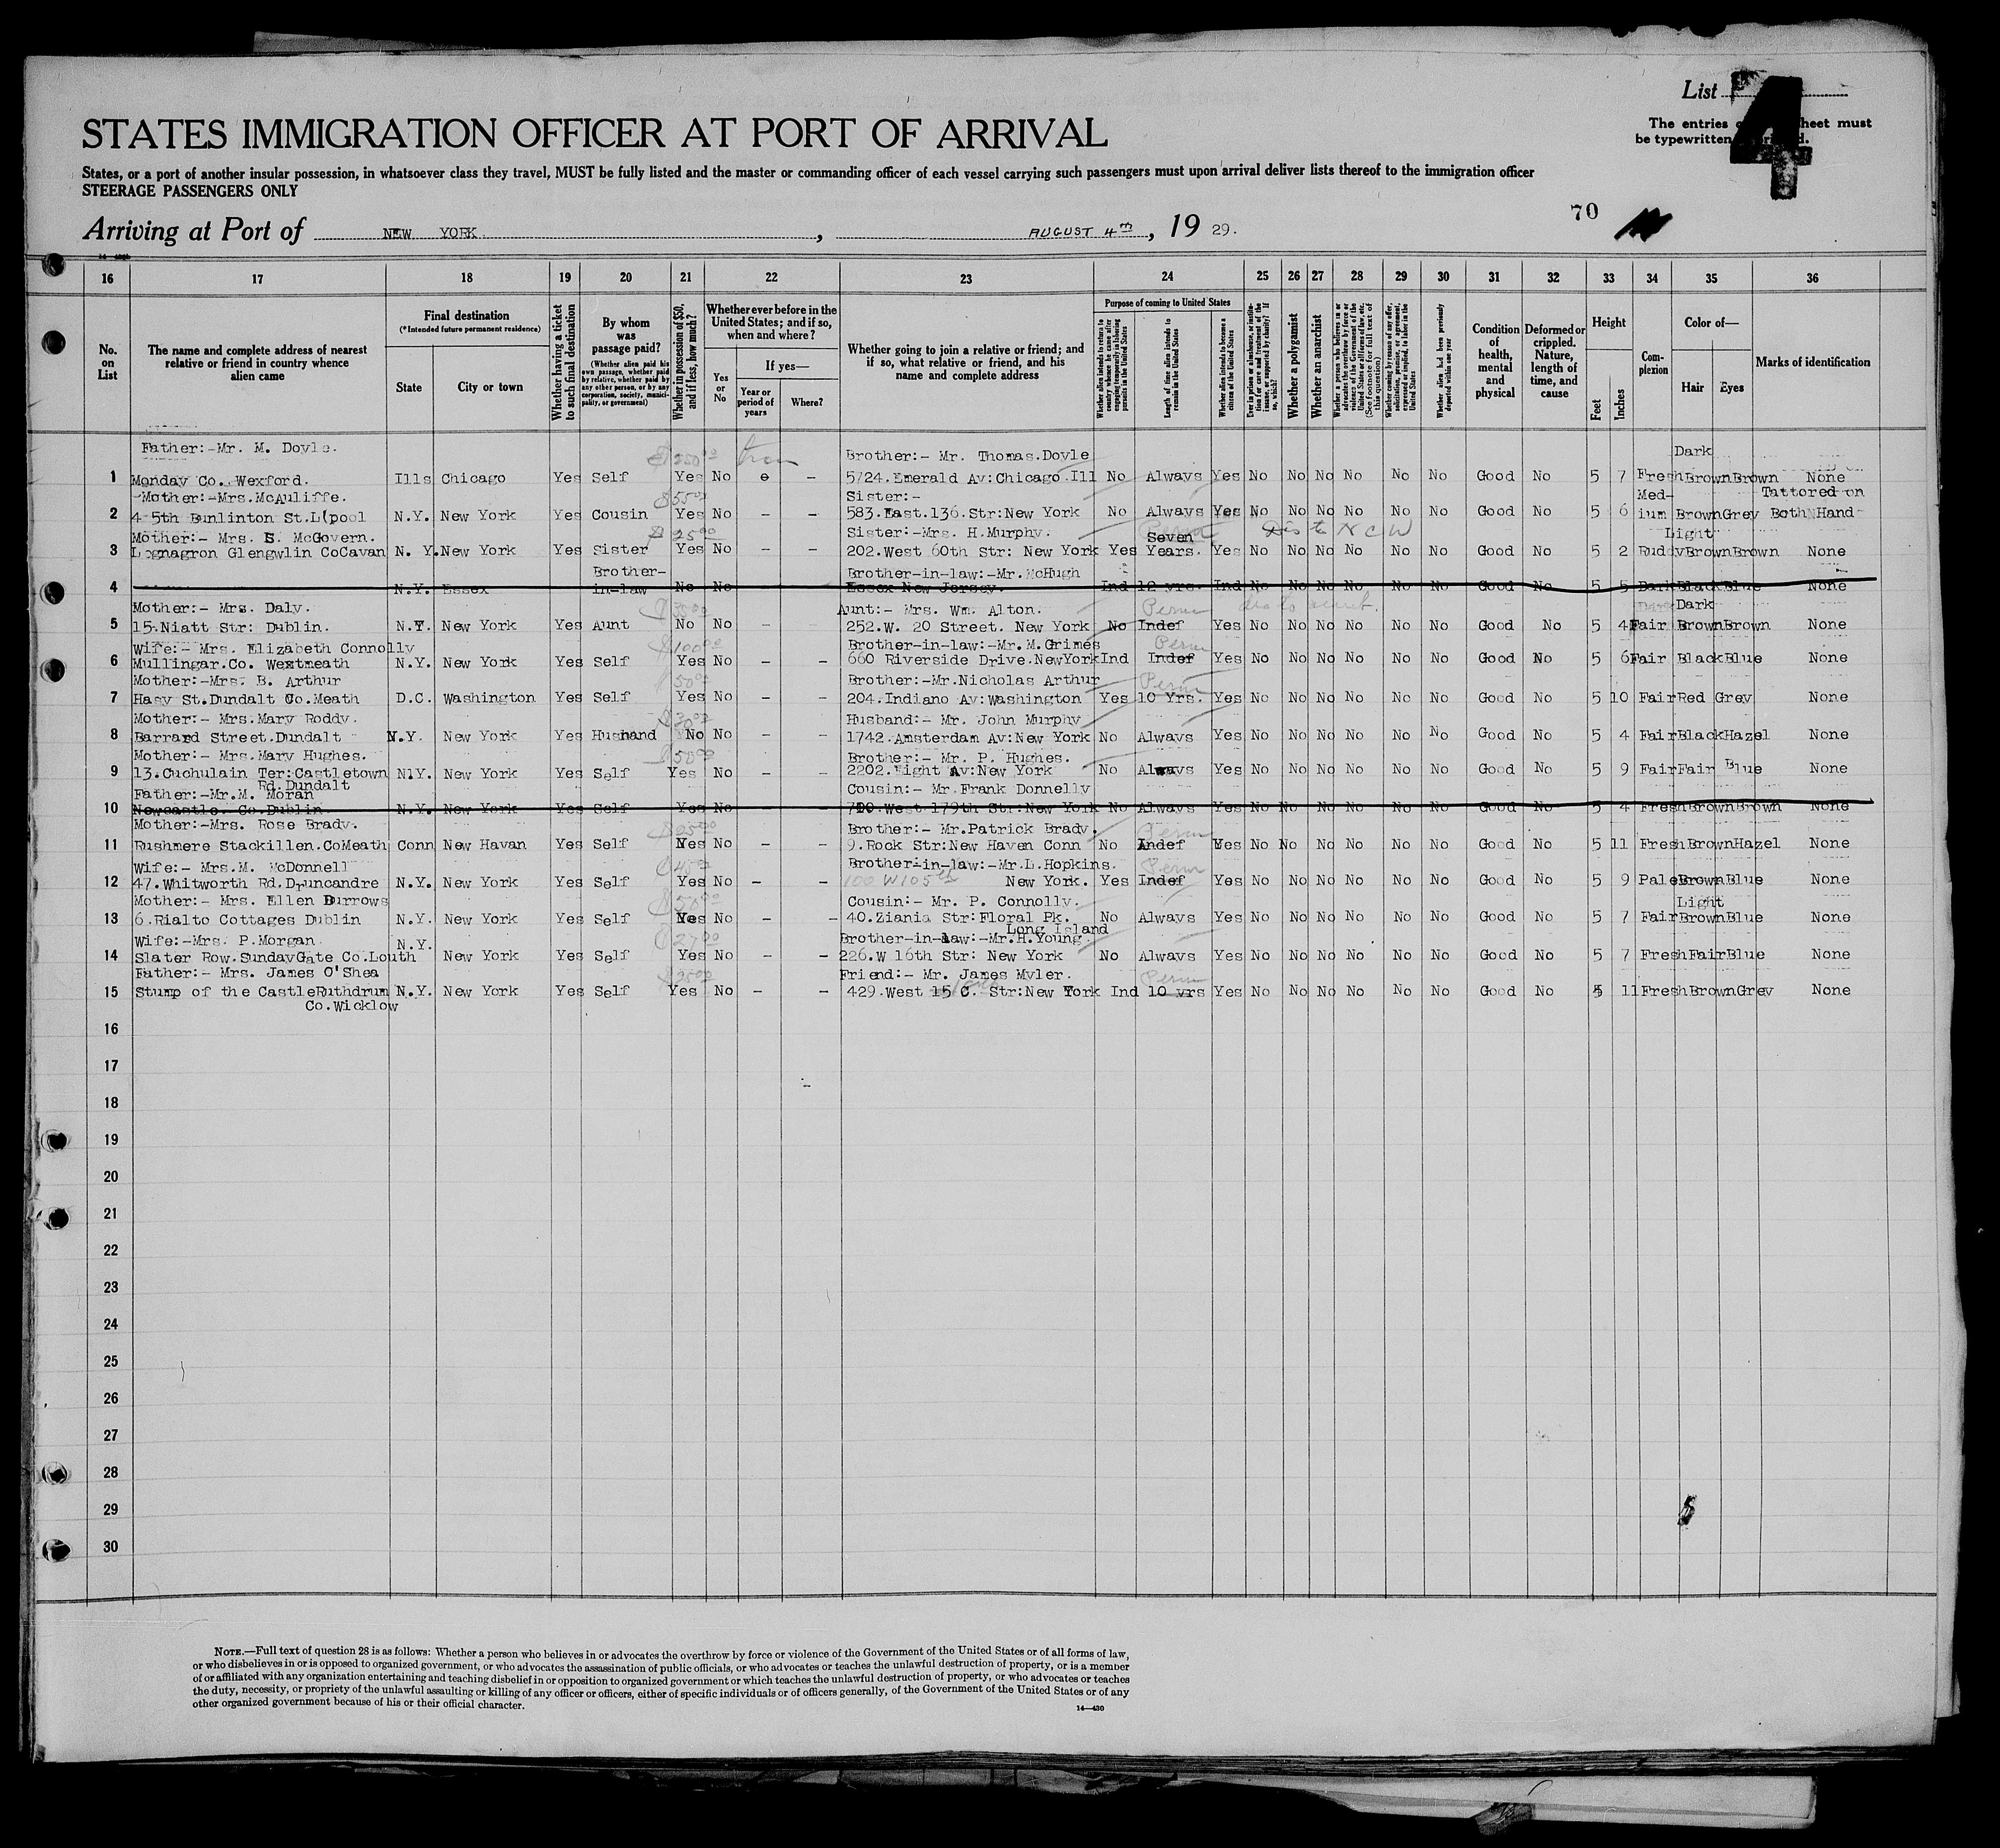 List 4
STATES IMMIGRATION OFFICER AT PORT OF ARRIVAL
The entries heet must
be typewritten
States, or a port of another insular possession, in whatsoever class they travel, MUST be fully listed and the master or commanding officer of each vessel carrying such passengers must upon arrival deliver lists thereof to the immigration officer
STEERAGE PASSENGERS ONLY
70
Arriving at Port of NEW YORK , AUGUST 4TH , 19 29.
16 17 18 19 20 21 22 23 24 25 26 27 28 29 30 31 32 33 34 35 36
No. on List
The name and complete address of nearest relative or friend in country whence alien came
Final destination
(*Intended future permanent residence)
State
City or town
Whether having a ticket to such final destination
By whom was passage paid?
(Whether alien paid his own passage, whether paid by relative, whether paid by any other person, or by any corporation, society, municipality, or government)
Whether in possession of $50, and if less, how much?
Whether ever before in the United States; and if so, when and where?
Yes or No
If yes—
Year or period of years
Where?
Whether going to join a relative or friend; and if so, what relative or friend, and his name and complete address
Purpose of coming to United States
Whether alien intends to return to country whence he came after engaging temporarily in laboring pursuits in the United States
Length of time alien intends to remain in the United States
Whether alien intends to become a citizen of the United States
Ever in prison or almshouse, or institution for care and treatment of the insane, or supported by charity? If so, which?
Whether a polygamist
Whether an anarchist
Whether a person who believes in or advocates the overthrow by force or violence of the Government of the United States or all forms of law, etc. (See footnote for full text of this question)
Whether coming by reason of any offer, solicitation, promise, or agreement, expressed or implied, to labor in the United States
Whether alien had been previously deported within one year
Condition of health, mental and physical
Deformed or crippled. Nature, length of time, and cause
Height
Feet
Inches
Complexion
Color of—
Hair
Eyes
Marks of identification
Father:-Mr. M. Doyle. Brother:- Mr. Thomas.Doyle Dark
1 Monday Co. Wexford. Ills Chicago Yes Self Yes No - 5724.Emerald Av:Chicago.Ill No Always Yes No No No No No No Good No 5 7 Fresh Brown Brown None
Mother:-Mrs.McAuliffe. $55 Sister:- Med- Tattored on
2 4 5th Bunlinton St.L(pool N.Y. New York Yes Cousin Yes No - - 583.East.136.Str:New York No Always Yes No No No No No No Good No 5 6 ium Brown Grey Both Hand
Mother:- Mrs. S. McGovern. $25 Sister:-Mrs. H.Murphy. Seven Light
3 Legnagron Glengwlin CoCavan N. Y. New York Yes Sister Yes No - - 202.West 60th Str: New York Yes Years. Yes No No No No No No Good No 5 2 Ruddy Brown Brown None
Brother- Brother-in-law:-Mr.McHugh
4 N.Y. Essex in-law No No Essex New Jersey. Ind 12 yrs. Ind No No No No No No Good No 5 5 Dark Black Blue None
Mother:- Mrs. Daly. Aunt:- Mrs. Wm. Alton. Perm Dark
5 15.Niatt Str: Dublin. N.Y. New York Yes Aunt No No - 252.W. 20 Street. New York No Indef Yes No No No No No No Good No 5 4 Fair Brown Brown None
Wife:- Mrs. Elizabeth Connolly $100 Brother-in-law:-Mr.M.Grimes Perm
6 Mullingar.Co. Westmeath N.Y. New York Yes Self Yes No - - 660 Riverside Drive.NewYork Ind Indef Yes No No No No No No Good No 5 6 Fair Black Blue None
Mother:-Mrs. B. Arthur $50 Brother:-Mr.Nicholas Arthur Perm
7 Hasy St.Dundalt Co.Meath D.C. Washington Yes Self Yes No - - 204.Indiano Av:Washington Yes 10 Yrs. Yes No No No No No No Good No 5 10 Fair Red Grey None
Mother:- Mrs.Mary Roddy. Husband:- Mr. John Murphy
8 Barrard Street.Dundalt N.Y. New York Yes Husband No No - - 1742.Amsterdam Av:New York No Always Yes No No No No No No Good No 5 4 Fair Black Hazel None
Mother:- Mrs.Mary Hughes. $50 Brother:- Mr. P. Hughes.
9 13.Cuchulain Ter:Castletown N.Y. New York Yes Self Yes No - - 2202.Eight Av:New York No Always Yes No No No No No No Good No 5 9 Fair Fair Blue None
Rd.Dundalt
Father:-Mr.M. Moran Cousin:- Mr.Frank Donnelly
10 Newcastle Co.Dublin N.Y. New York Yes Self Yes No - - 720.West 179th Str:New York No Always Yes No No No No No No Good No 5 4 Fresh Brown Brown None
Mother:-Mrs. Rose Brady. Brother:- Mr.Patrick Brady. Perm
11 Rushmere Stackillen.CoMeath Conn New Havan Yes Self Yes No - - 9.Rock Str:New Haven Conn No Indef Yes No No No No No No Good No 5 11 Fresh Brown Hazel None
Wife:- Mrs.M. McDonnell Brother-in-law:-Mr.L.Hopkins. Perm
12 47.Whitworth Rd.Druncandre N.Y. New York Yes Self Yes No - - 100 W 105th New York. Yes Indef Yes No No No No No No Good No 5 9 Pale Brown Blue None
Mother:- Mrs. Ellen Burrows $50 Cousin:- Mr. P. Connolly. Light
13 6.Rialto Cottages Dublin N.Y. New York Yes Self Yes No - - 40.Ziania Str:Floral Pk. No Always Yes No No No No No No Good No 5 7 Fair Brown Blue None
Long Island
Wife:-Mrs. P.Morgan N.Y. Brother-in-law:-Mr.H.Young.
14 Slater Row.SundayGate Co.Louth New York Yes Self Yes No - - 226.W 16th Str: New York No Always Yes No No No No No No Good No 5 7 Fresh Fair Blue None
Father:- Mrs. James O'Shea Friend:- Mr. James Myler. Perm
15 Stump of the CastleRuthdrum N.Y. New York Yes Self Yes No - - 429.West 15 Str:New York Ind 10 yrs Yes No No No No No No Good No 5 11 Fresh Brown Grey None
Co.Wicklow
16
17
18
19
20
21
22
23
24
25
26
27
28
29
30
NOTE.—Full text of question 28 is as follows: Whether a person who believes in or advocates the overthrow by force or violence of the Government of the United States or of all forms of law,
or who disbelieves in or is opposed to organized government, or who advocates the assassination of public officials, or who advocates or teaches the unlawful destruction of property, or is a member
of or affiliated with any organization entertaining and teaching disbelief in or opposition to organized government or which teaches the unlawful destruction of property, or who advocates or teaches
the duty, necessity, or propriety of the unlawful assaulting or killing of any officer or officers, either of specific individuals or of officers generally, of the Government of the United States or of any
other organized government because of his or their official character.
14—430